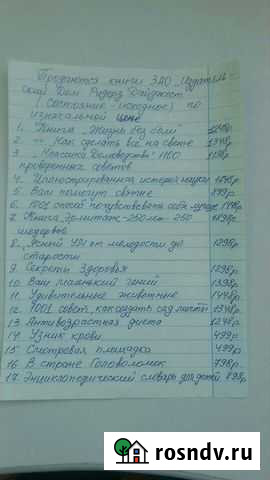 Продаются книги ЗАО „Издатель-
ский Дом Ридерз Дайджест
(состояние - исходное) по
изначальной цене
1. Книга „Жизнь без боли"
2. — Как сделать всё на свете 1348р
3. „Классика Домоводства" 1100
проверенных советов
4. Иллюстрированная история науки
5. Вам помогут святые 899р.
6. 1001 способ почувствовать себя лучше 1198р.
7. Книга Эрмитаж - 250 лет - 250
шедевров
8. Ясный ум от молодости до 1298р.
старости
9. Секреты Здоровья 1298р.
10 Ваш маленький гений 1398р.
11. Удивительные животные 1448р.
12. 1001 совет, как создать сад мечты 1348р.
13. Антивозрастная диета 1248р.
14. Узник крови 499р.
15 Смотровая площадка 499р.
16 В стране Головоломок 798р.
17. Энциклопедический словарь для детей 898р.
rosndv.ru